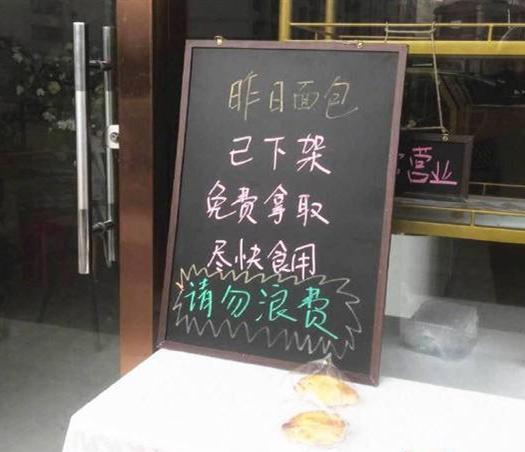 昨日面包
已下架
免费拿取
尽快食用
请勿浪费
营业